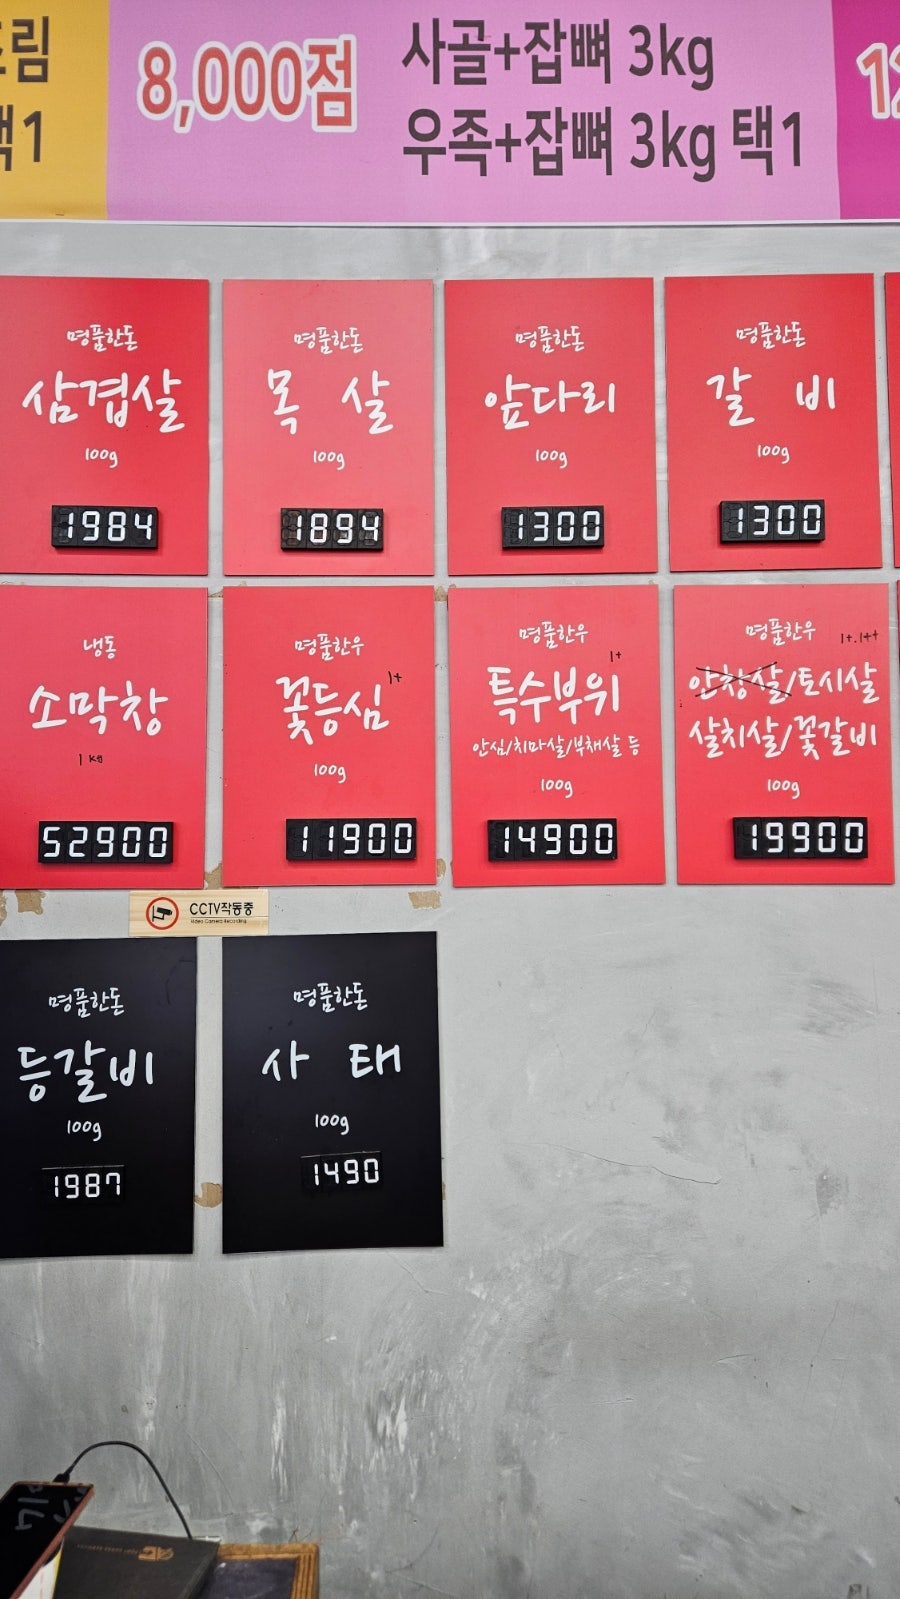 림
1
8,000점
사골+잡뼈 3kg
우족+잡뼈 3kg 택1
12
명품한돈
삼겹살
100g
1984
명품한돈
목 살
100g
1894
명품한돈
앞다리
100g
1300
명품한돈
갈 비
100g
1300
냉동
소막창
1kg
52900
명품한우
꽃등심 1+
100g
11900
명품한우
특수부위 1+
안심/치마살/부채살 등
100g
14900
명품한우 1+.1++
안창살/토시살
살치살/꽃갈비
100g
19900
CCTV작동중
Video Camera Recording
명품한돈
등갈비
100g
1987
명품한돈
사 태
100g
1490